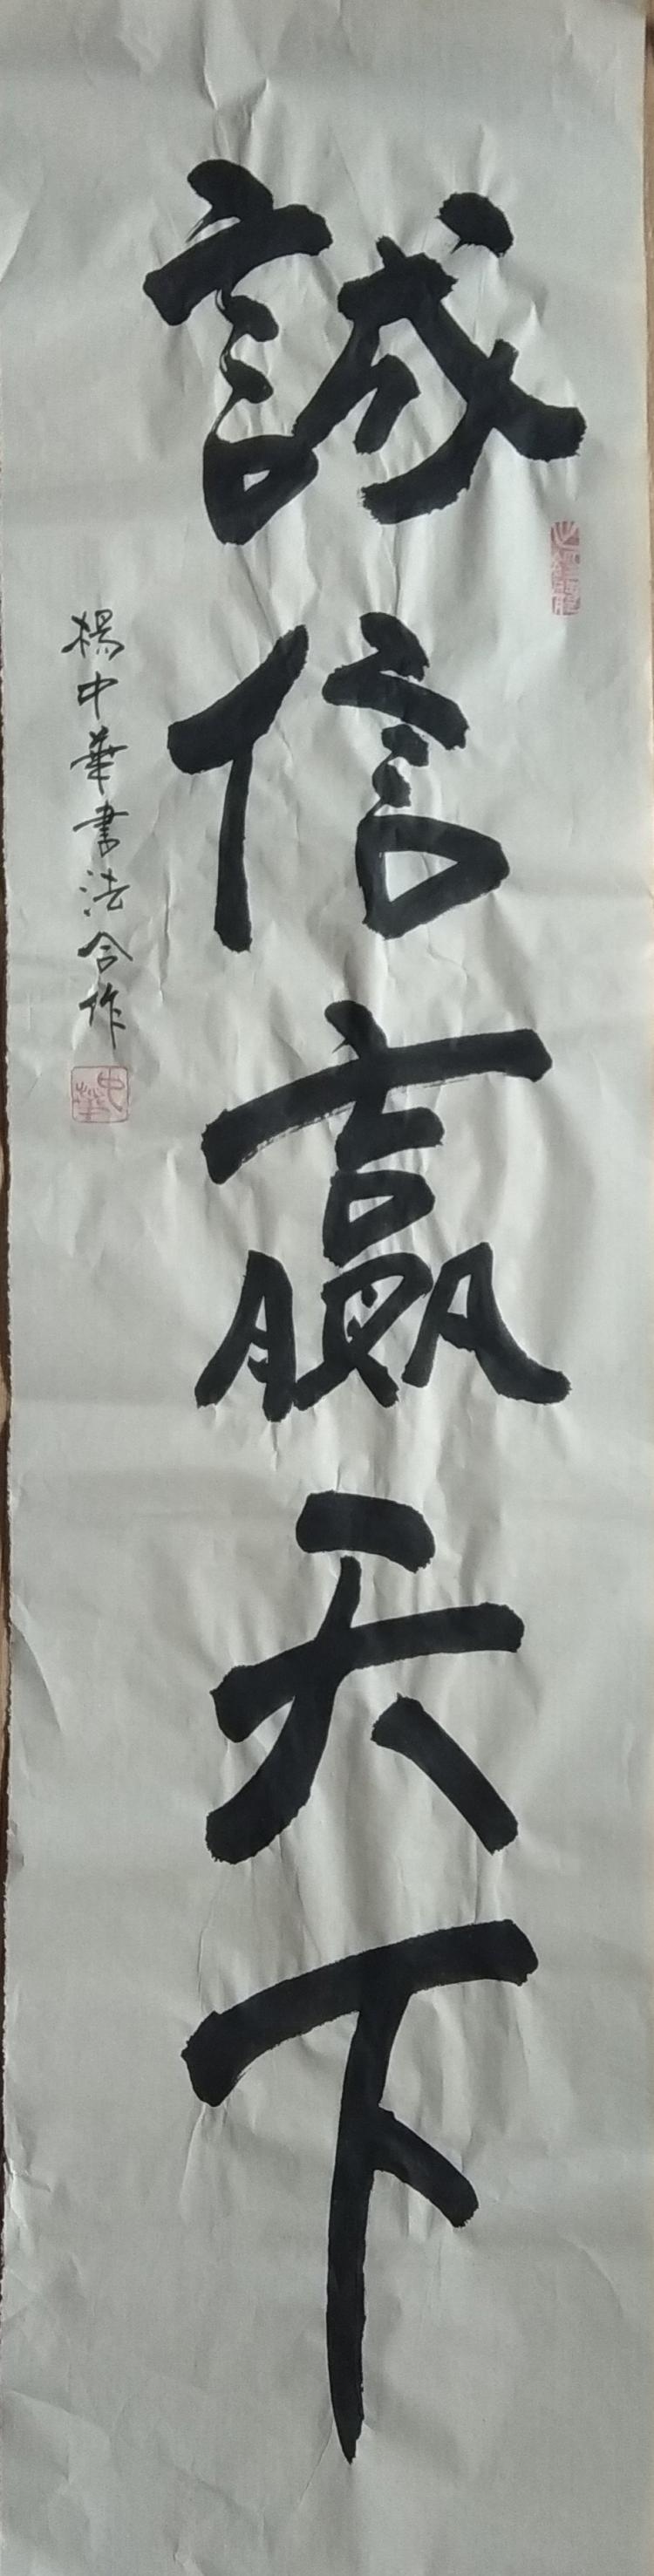 誠信赢天下
楊中華書法合作
中華